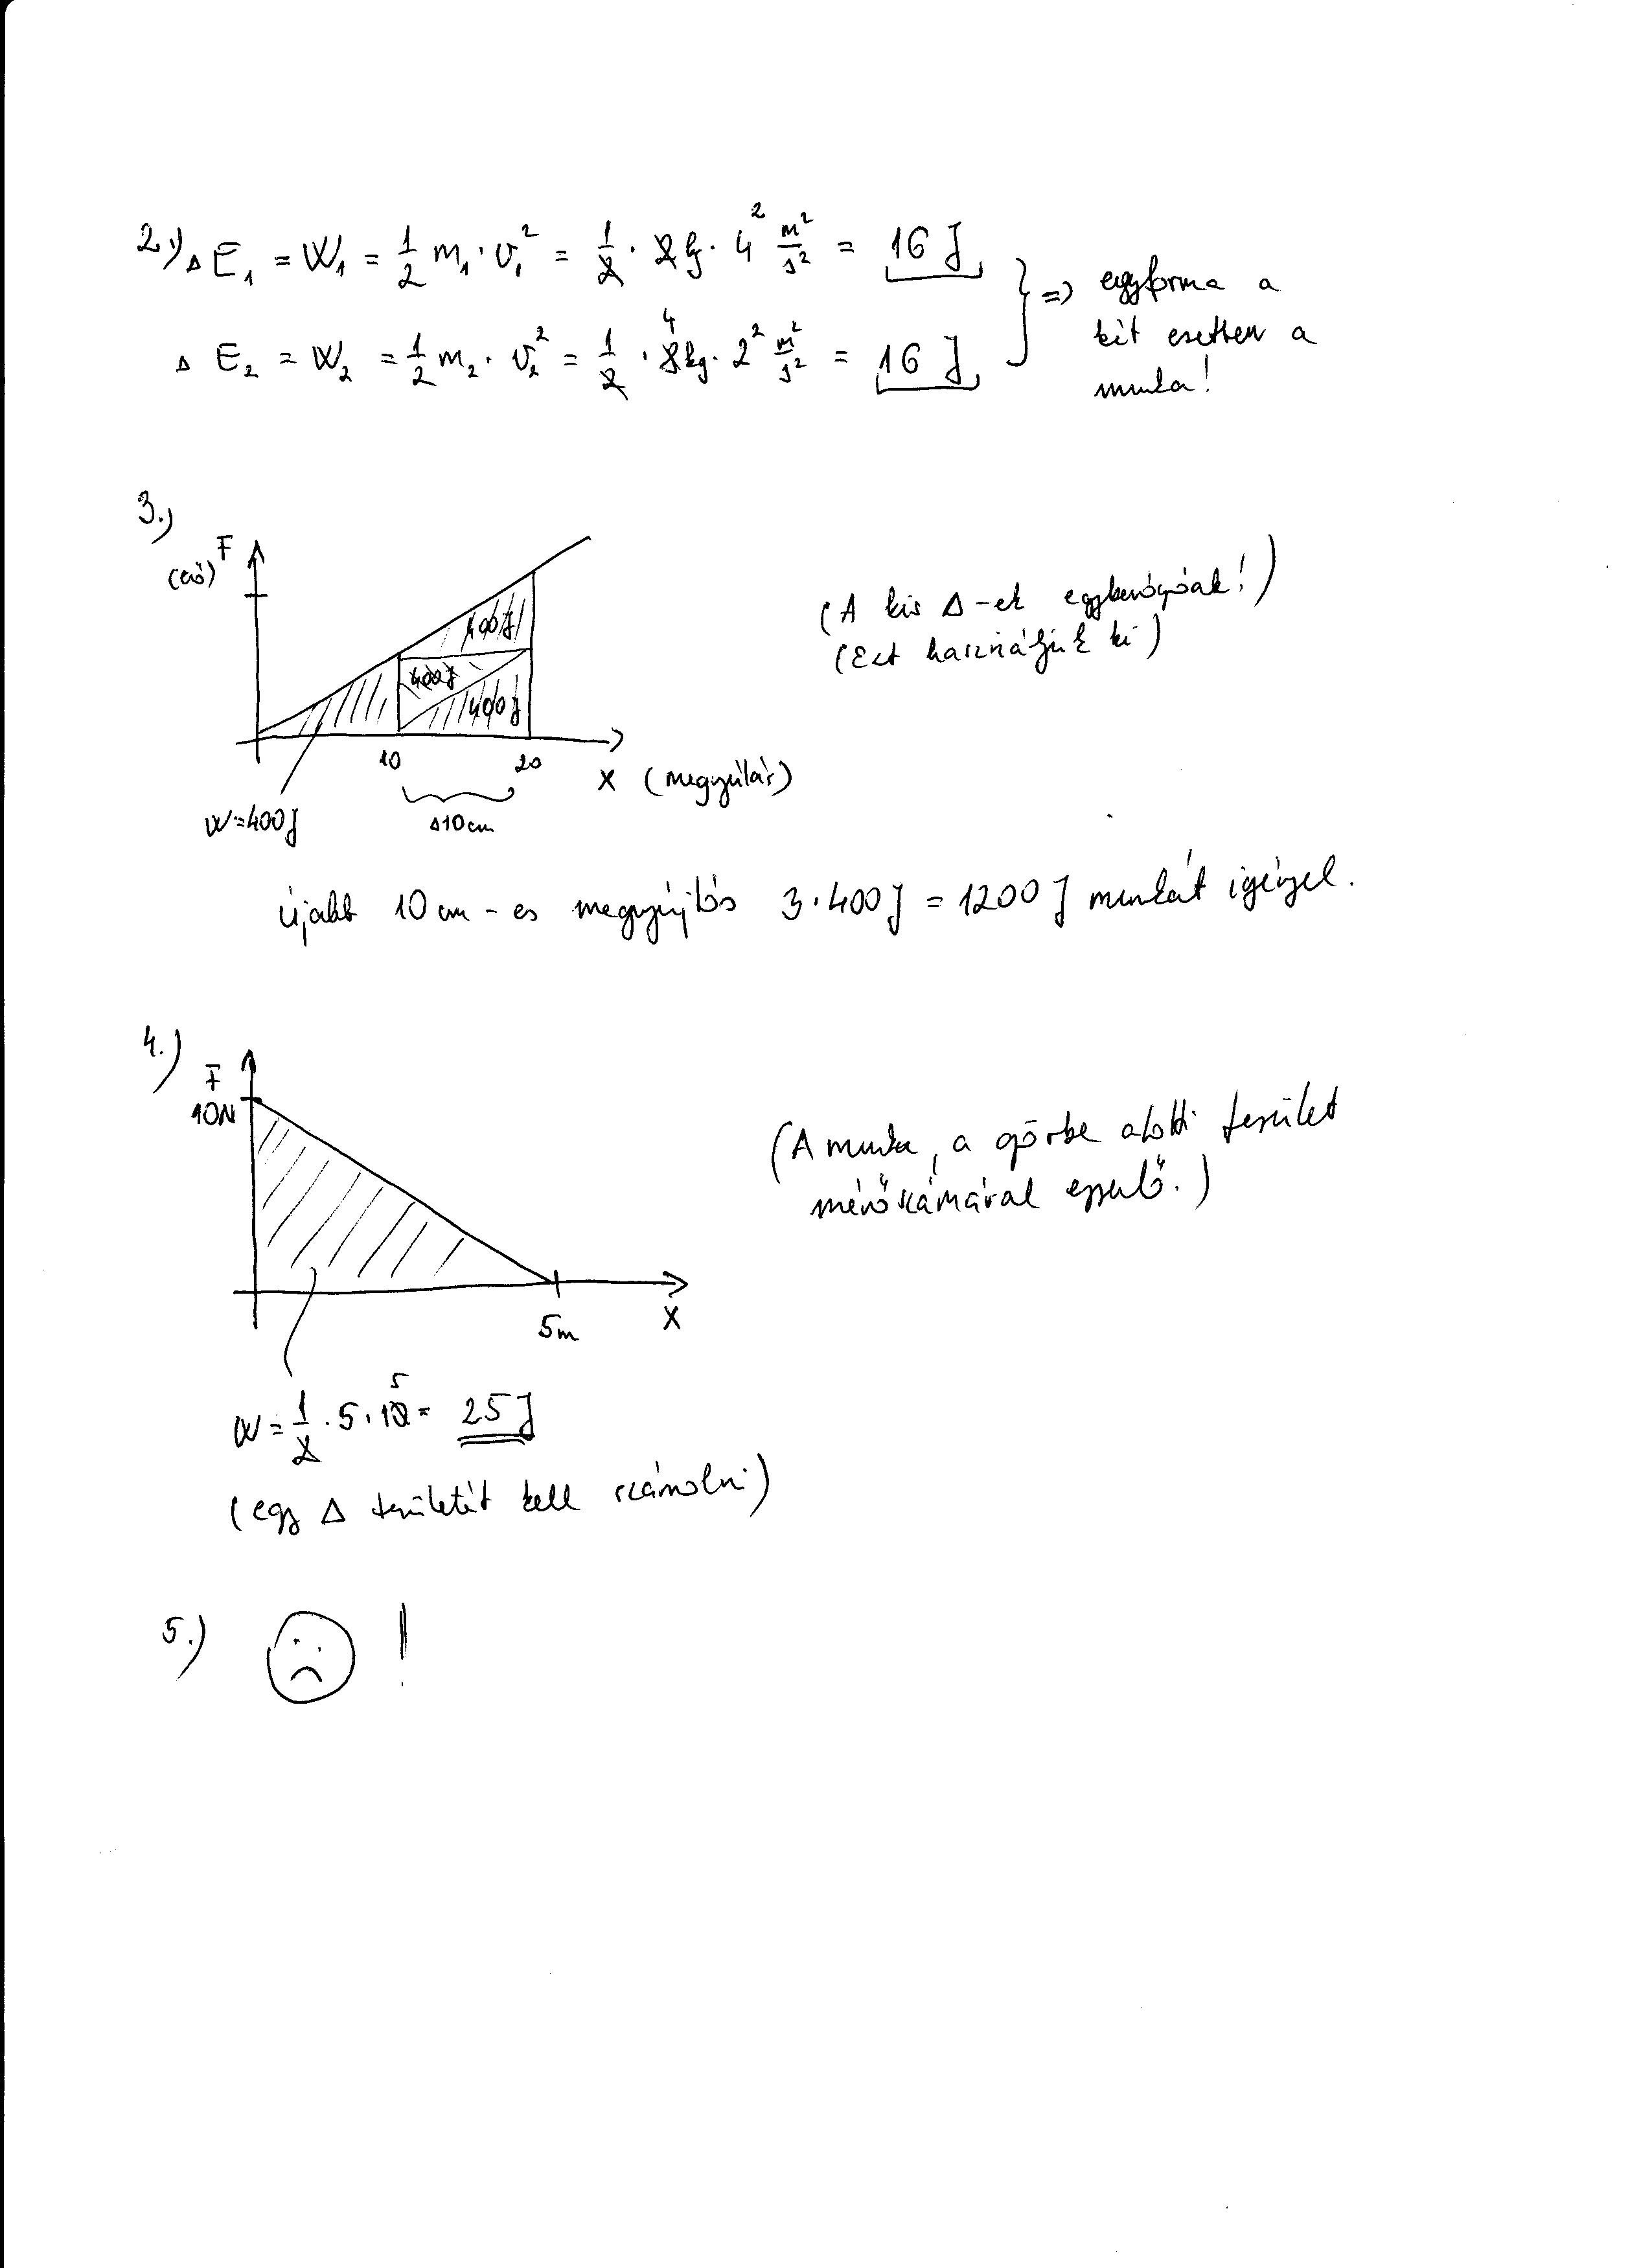 2.) ΔE₁ = W₁ = 1/2 m₁ · v₁² = 1/2 · 2kg · 4² m²/s² = 16 J
ΔE₂ = W₂ = 1/2 m₂ · v₂² = 1/2 · 8kg · 2² m²/s² = 16 J
4
} => egyforma a
két esetben a
munka!
3.)
F
(erő)
400J
400J
400J
10
20
x (megnyúlás)
W=400J
Δ10cm
(A kis Δ-ek egybevágóak!)
(Ezt használjuk ki)
újabb 10 cm-es megnyújtás 3·400J = 1200J munkát igényel.
4.)
F
10N
5m
x
(A munka, a görbe alatti terület
mérőszámával egyenlő.)
W = 1/2 · 5 · 10 = 25J
5
(egy Δ területét kell számolni)
5.) !